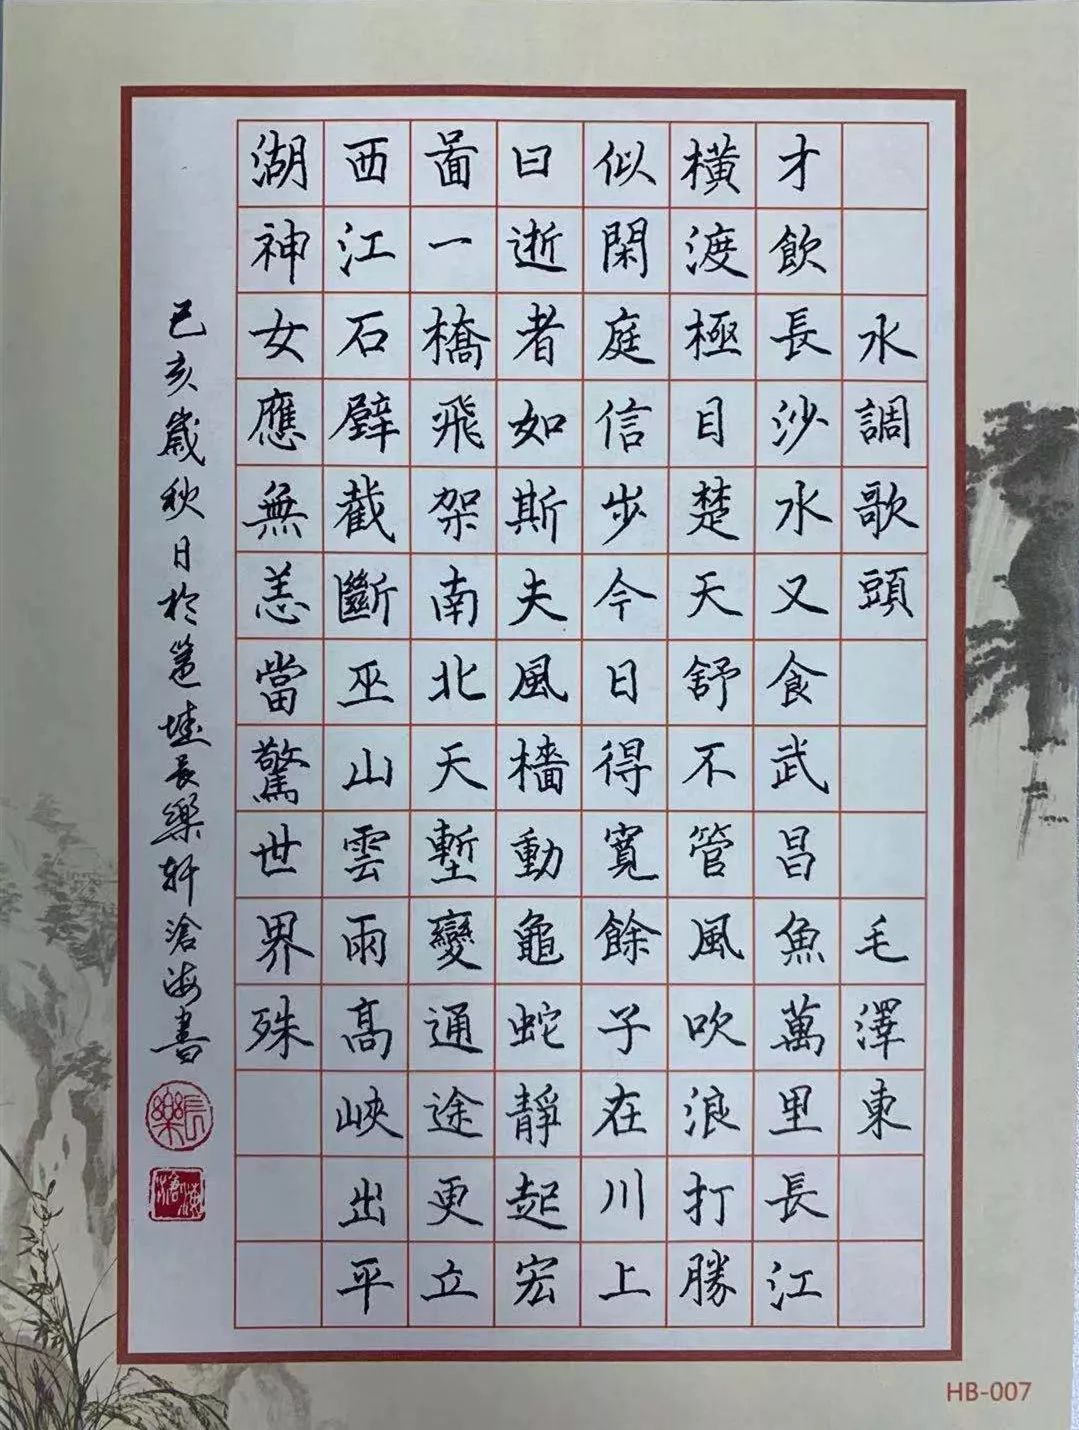 水調歌頭 毛澤東
才飲長沙水又食武昌魚萬里長江
橫渡極目楚天舒不管風吹浪打勝
似閑庭信步今日得寬餘子在川上
曰逝者如斯夫風檣動龜蛇靜起宏
啚一橋飛架南北天塹變通途更立
西江石壁截斷巫山雲雨高峽出平
湖神女應無恙當驚世界殊
己亥歲秋日於墟長樂軒滄海書
長樂
滄海
HB-007